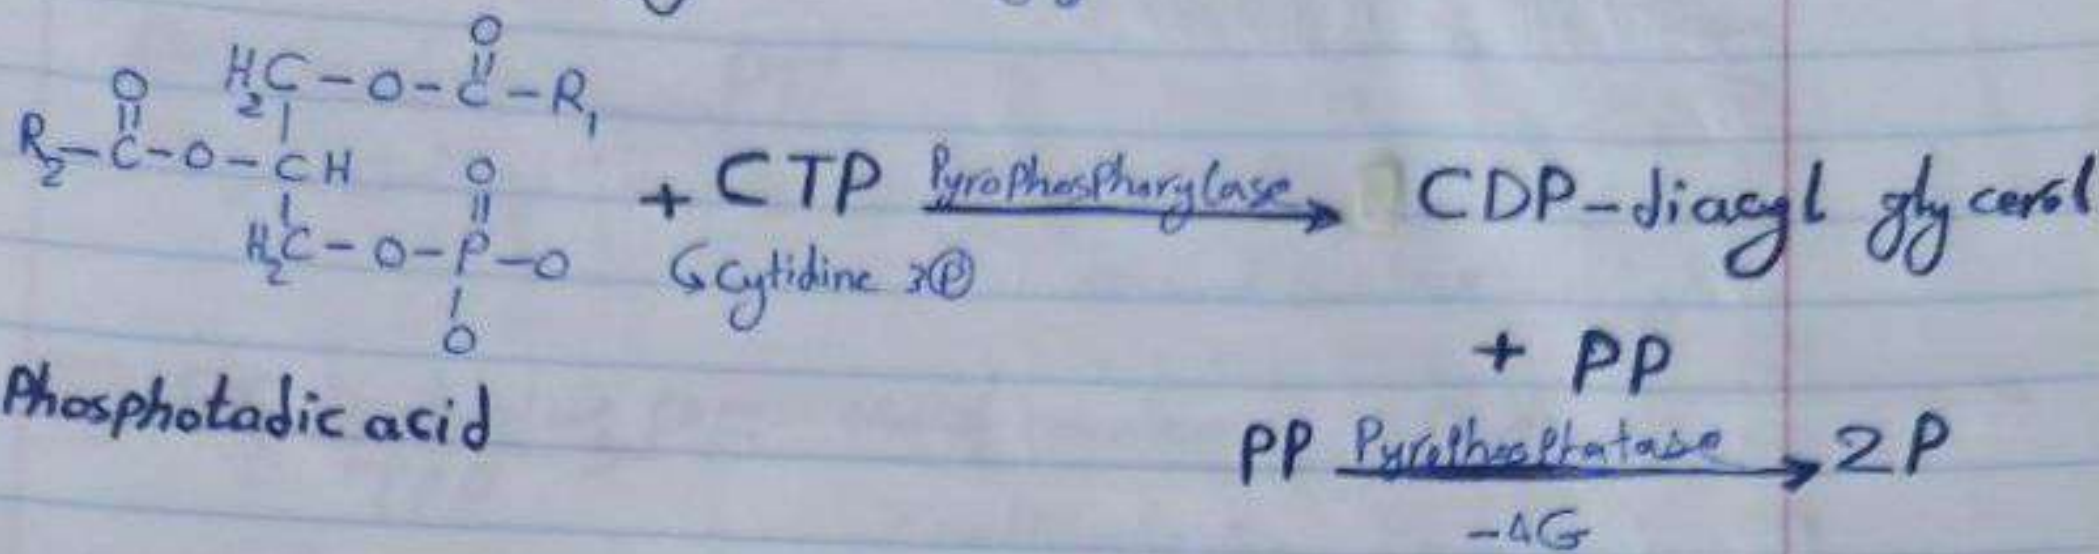 O O
H2C-O-C-R1
R2-C-O-CH O
H2C-O-P-O
O
+ CTP Pyrophosphorylase CDP-diacyl glycerol
Cytidine 3P
+ PP
Phosphotadic acid
PP Pyrophosphatase 2P
-ΔG